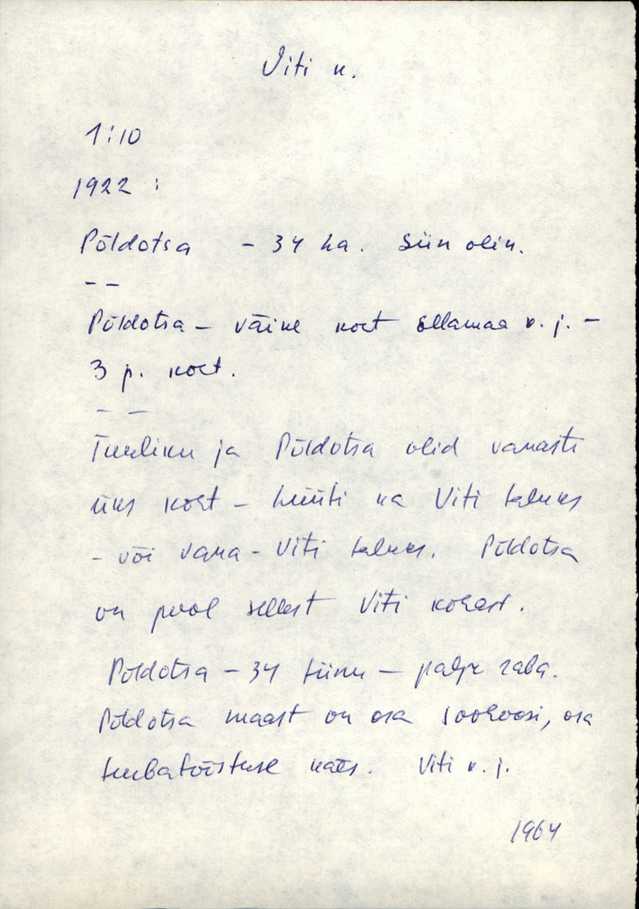 Viti k.
1:10
1922 :
Põldotsa - 34 ha. Siin olin.
--
Põldotsa - väike koht Sellamaa k. j. -
3 p. koht.
--
Tuuliku ja Põldotsa olid vanasti
üks koht - hüüti ka Viti taluks
- või Vana-Viti taluks. Põldotsa
on pool sellest Viti kohast.
Põldotsa - 34 tiinu - palju raba.
Põldotsa maast on osa sovhoosi, osa
turbatööstuse käes. Viti k. j.
1964